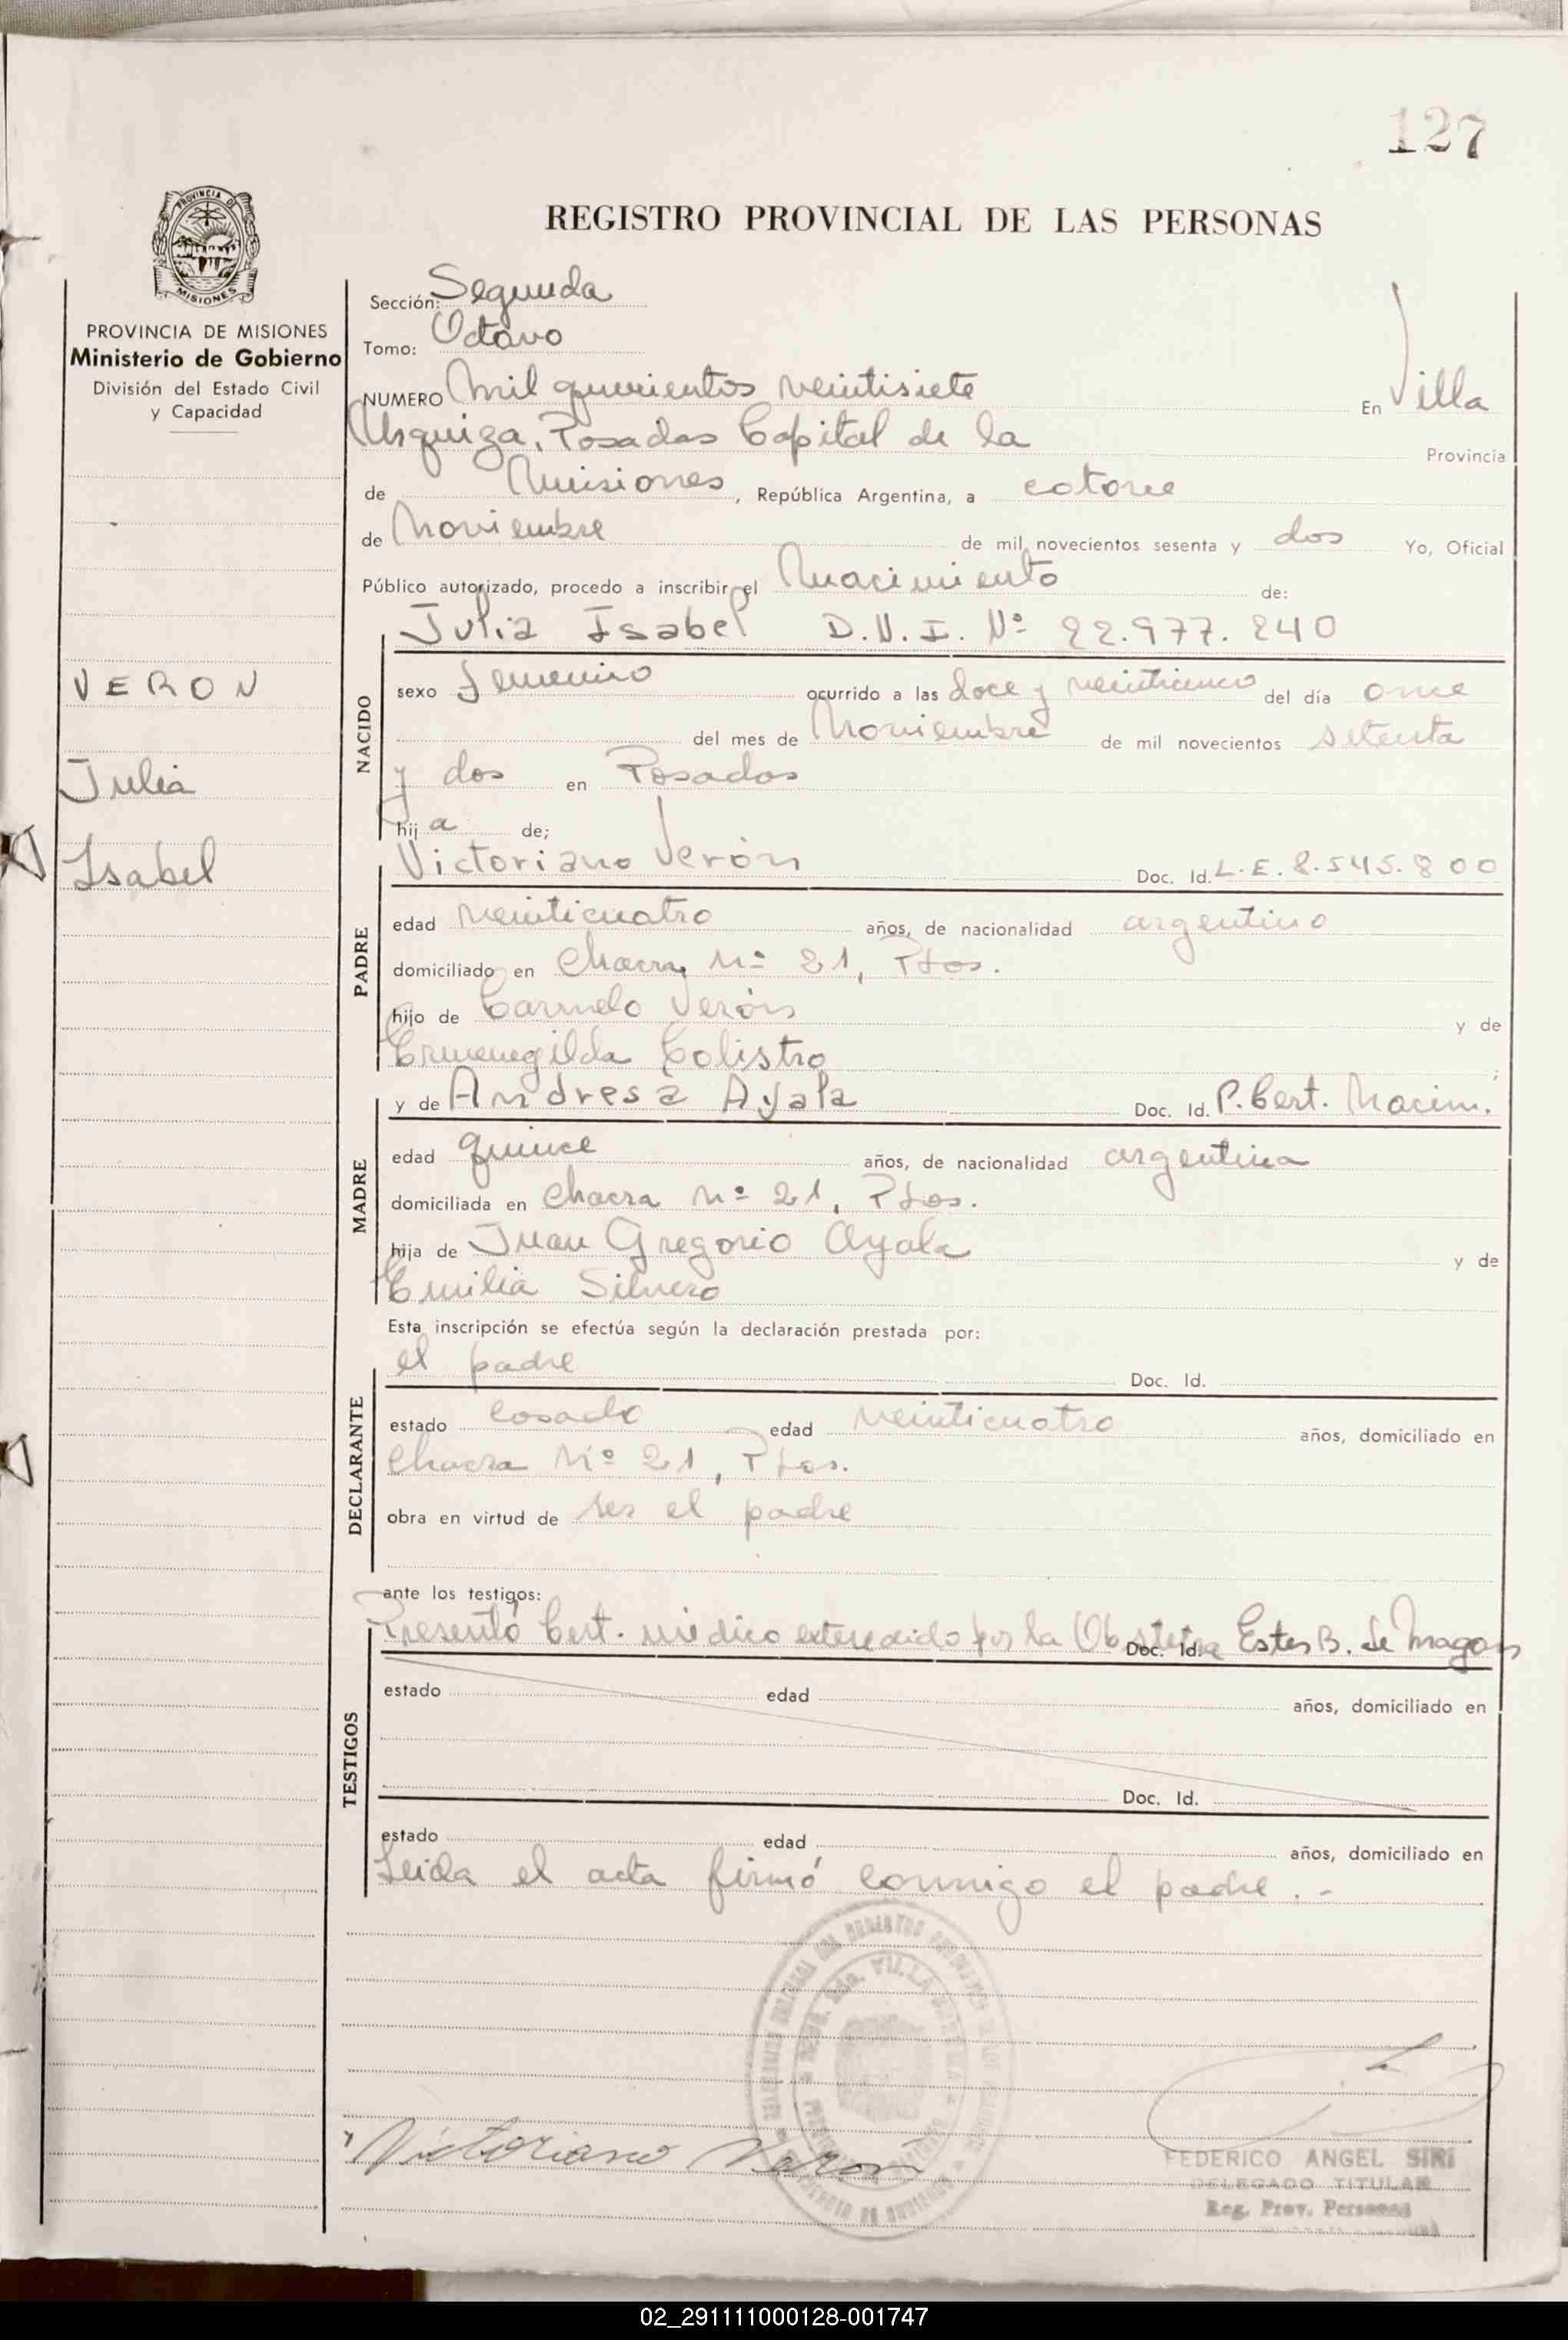 127
PROVINCIA DE
MISIONES
REGISTRO PROVINCIAL DE LAS PERSONAS
PROVINCIA DE MISIONES
Ministerio de Gobierno
División del Estado Civil
y Capacidad
VERON
Julia
Isabel
Sección: Segunda
Tomo: Octavo
NUMERO Mil quinientos veintisiete En Villa
Urquiza, Posadas Capital de la Provincia
de Misiones, República Argentina, a catorce
de Noviembre de mil novecientos sesenta y dos Yo, Oficial
Público autorizado, procedo a inscribir el Nacimiento de:
Julia Isabel D.N.I. Nº 22.977.240
NACIDO
sexo femenino ocurrido a las doce y veinticinco del día once
del mes de Noviembre de mil novecientos setenta
y dos en Posadas
hija de;
PADRE
Victoriano Verón Doc. Id. L.E. 8.545.800
edad veinticuatro años, de nacionalidad argentino
domiciliado en Chacra Nº 21, Pdas.
hijo de Carmelo Verón y de
Ermenegilda Colistro
MADRE
y de Andresa Ayala Doc. Id. P. Cert. Nacim.
edad quince años, de nacionalidad argentina
domiciliada en Chacra Nº 21, Pdas.
hija de Juan Gregorio Ayala y de
Emilia Silvero
Esta inscripción se efectúa según la declaración prestada por:
DECLARANTE
el padre Doc. Id.
estado casado edad veinticuatro años, domiciliado en
Chacra Nº 21, Pdas.
obra en virtud de ser el padre
ante los testigos:
TESTIGOS
Presentó Cert. médico extendido por la Obstetra Doc. Id. Ester B. de
estado edad años, domiciliado en
Doc. Id.
estado edad años, domiciliado en
Leida el acta firmó conmigo el padre.-
VILLA
Victoriano Verón
FEDERICO ANGEL SIRI
DELEGADO TITULAR
Reg. Prov. Personas
02_291111000128-001747